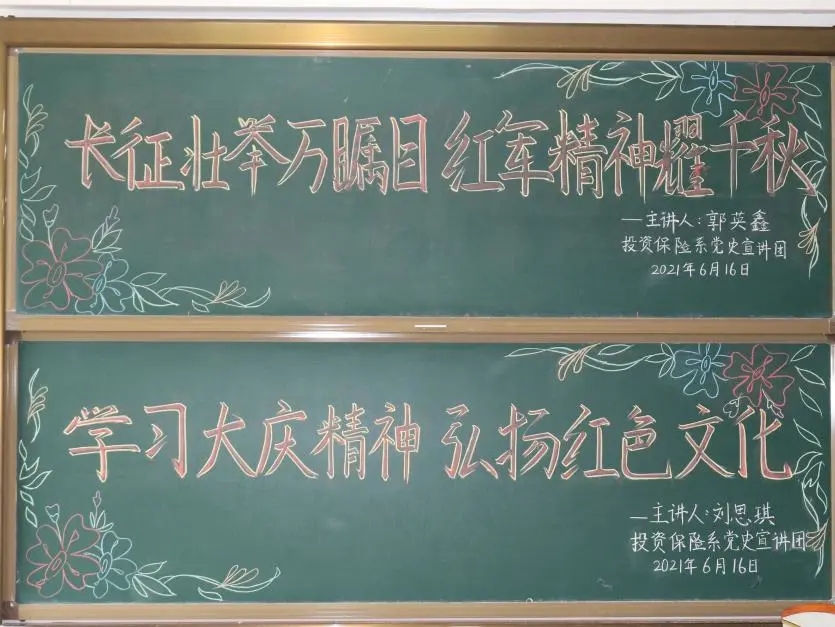 长征壮举万瞩目 红军精神耀千秋
—主讲人:郭英鑫
投资保险系党史宣讲团
2021年6月16日
学习大庆精神 弘扬红色文化
—主讲人:刘思琪
投资保险系党史宣讲团
2021年6月16日